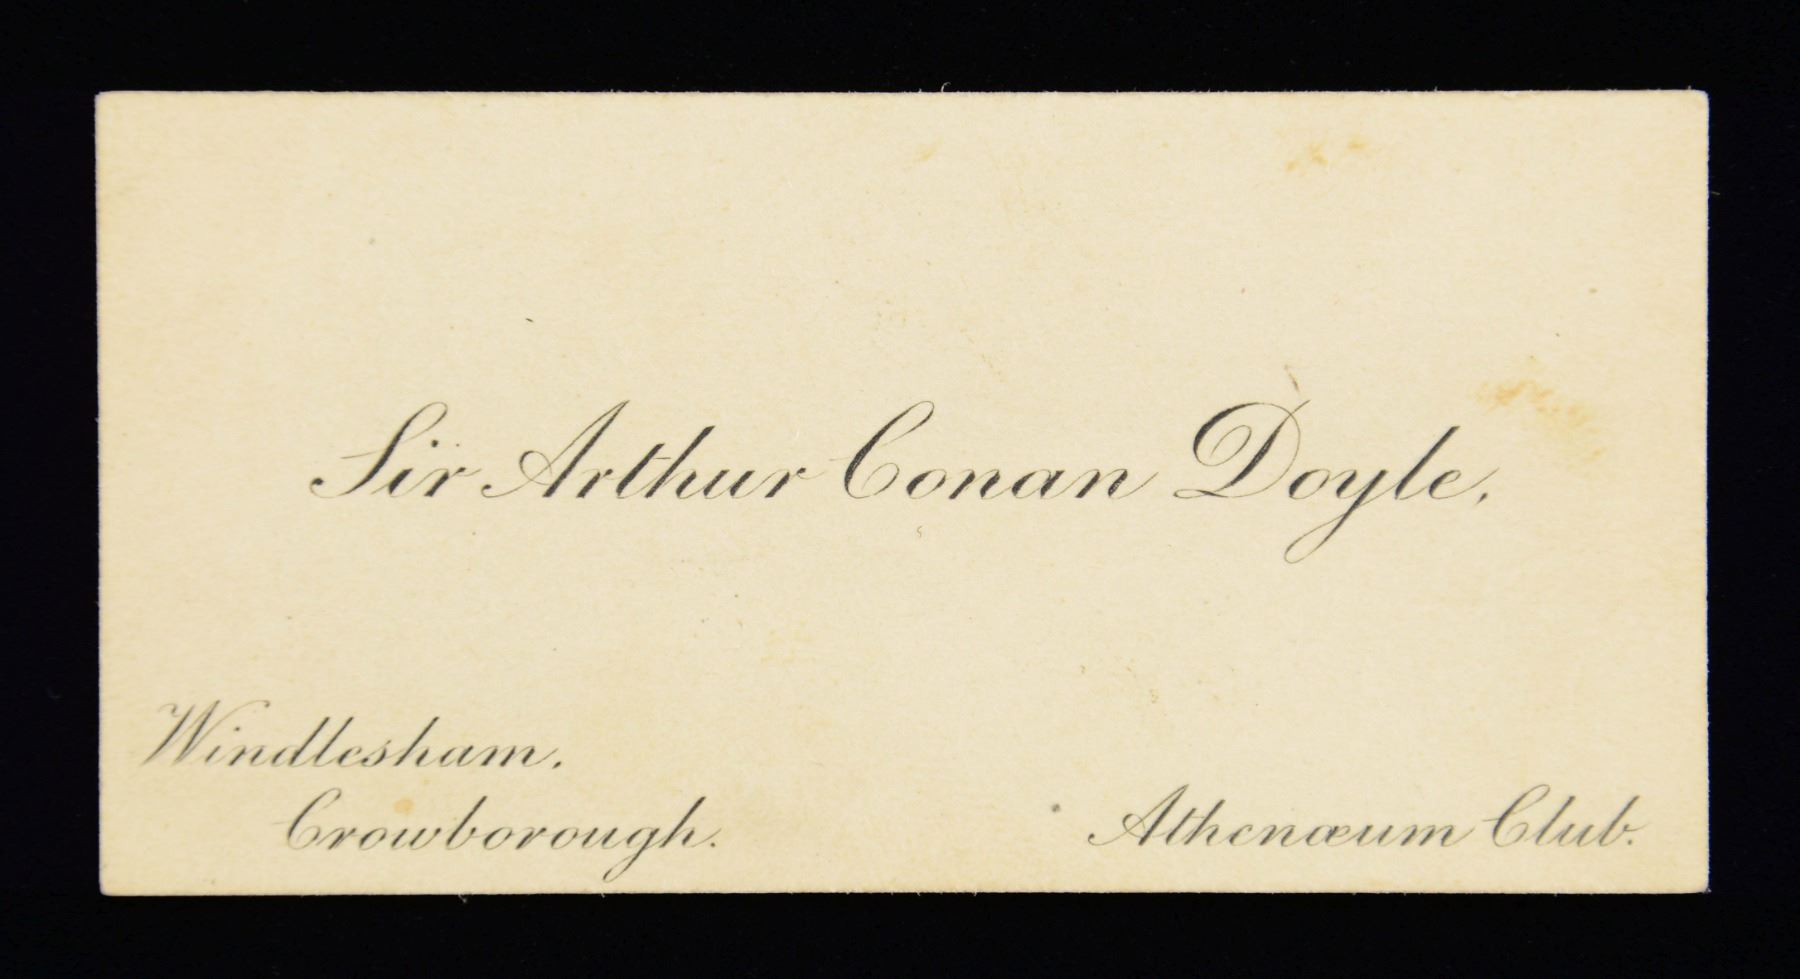 Sir Arthur Conan Doyle.
Windlesham.
Crowborough.
Athenæum Club.